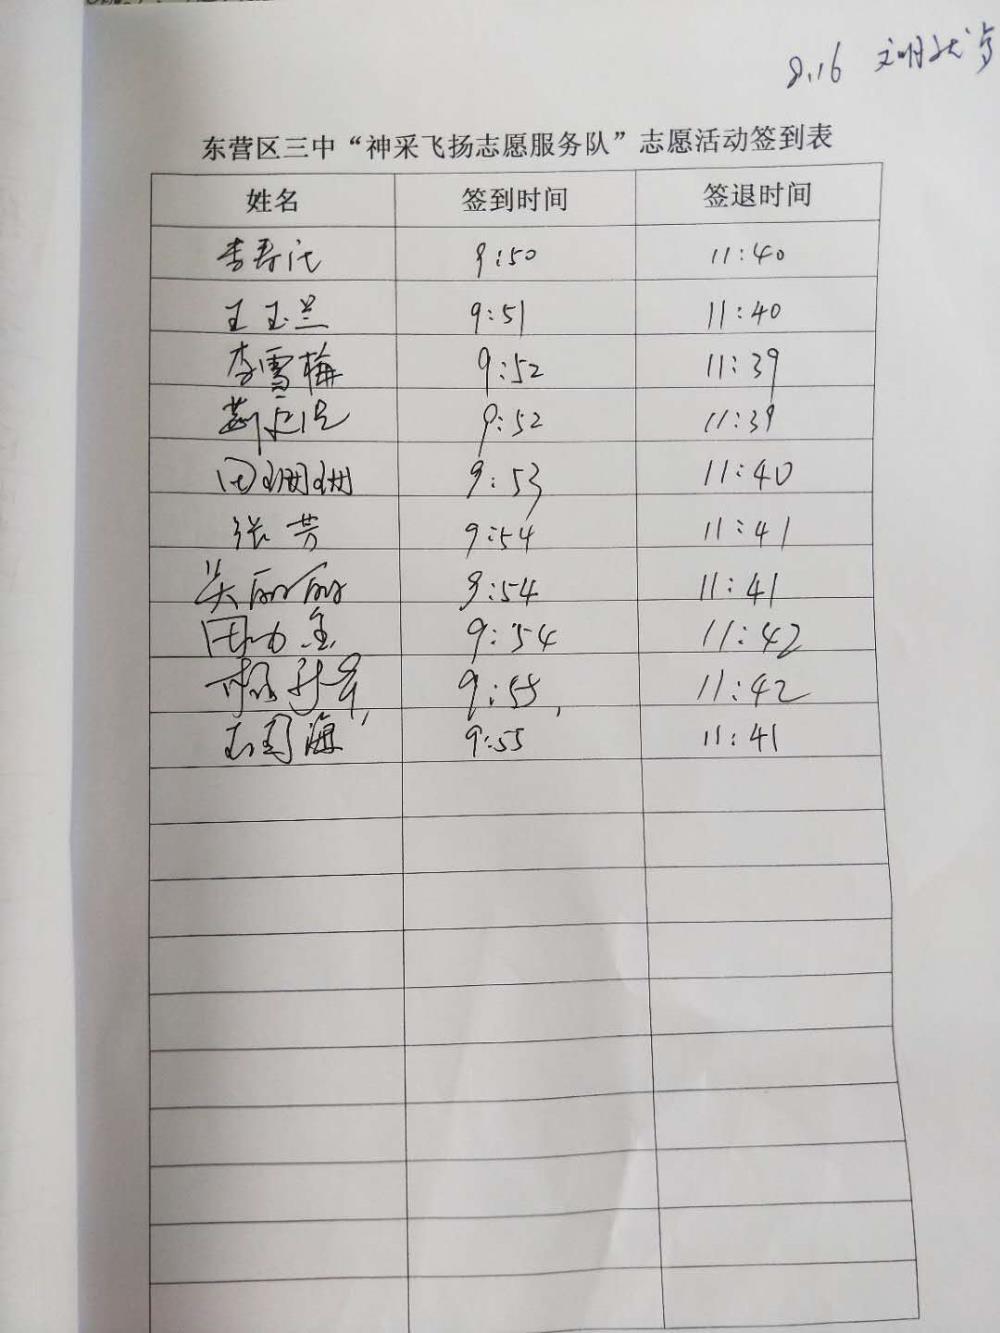 8.16 文明
东营区三中“神采飞扬志愿服务队”志愿活动签到表
姓名 签到时间 签退时间
李春 9:50 11:40
王玉兰 9:51 11:40
李雪梅 9:52 11:39
9:52 11:39
田珊珊 9:53 11:40
张芳 9:54 11:41
吴丽丽 9:54 11:41
9:54 11:42
杨 9:55 11:42
海 9:55 11:41